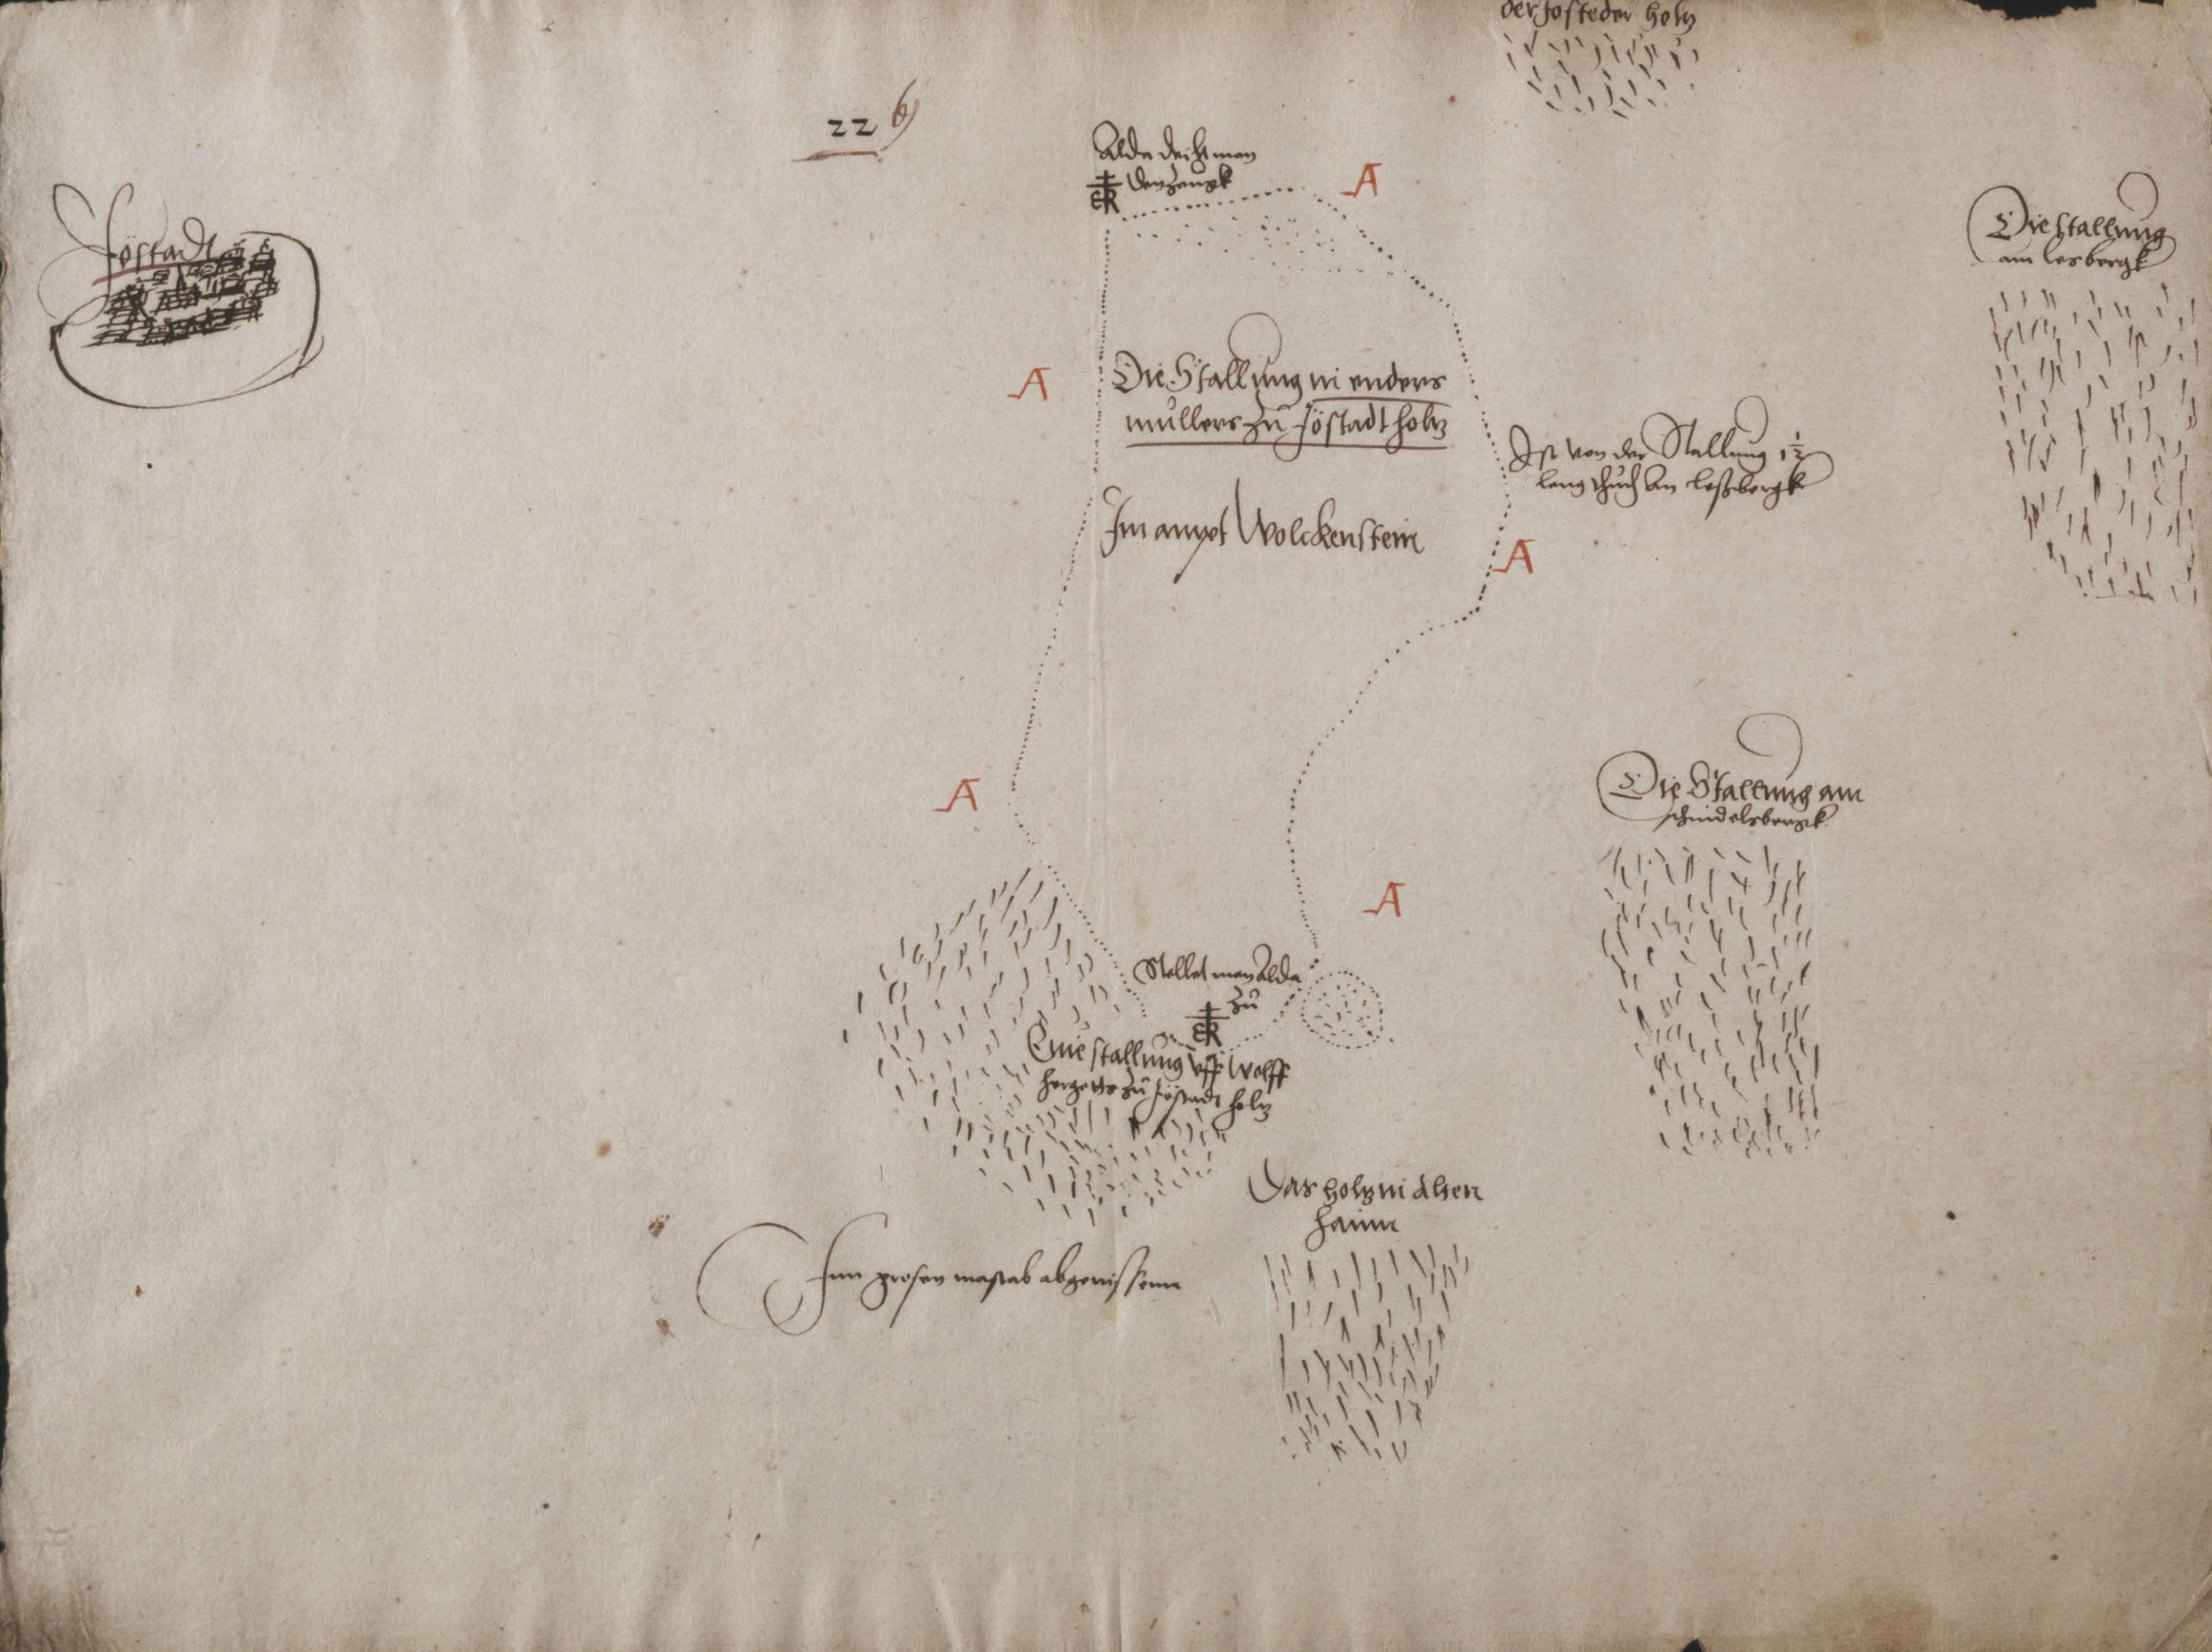 der Josteder holtz
22 6)
Alda Zeiht man
den Zeugk
ER
A
Jöstadt
Die Stallung
am lesbergk
Die Stallung in enders
mullers zu Jöstadt holtz
A
Ist von der Stallung 1 1/2
lang am leßbergk
Im ampt Wolckenstein
A
Die Stallung am
schindelsbergk
A
A
Stellet man Alda
zu
ER
Eine stallung uff Wolff
hergetts zu Jöstadt holtz
Das holtz in alten
hainn
Inn grosen mastab abgerissenn